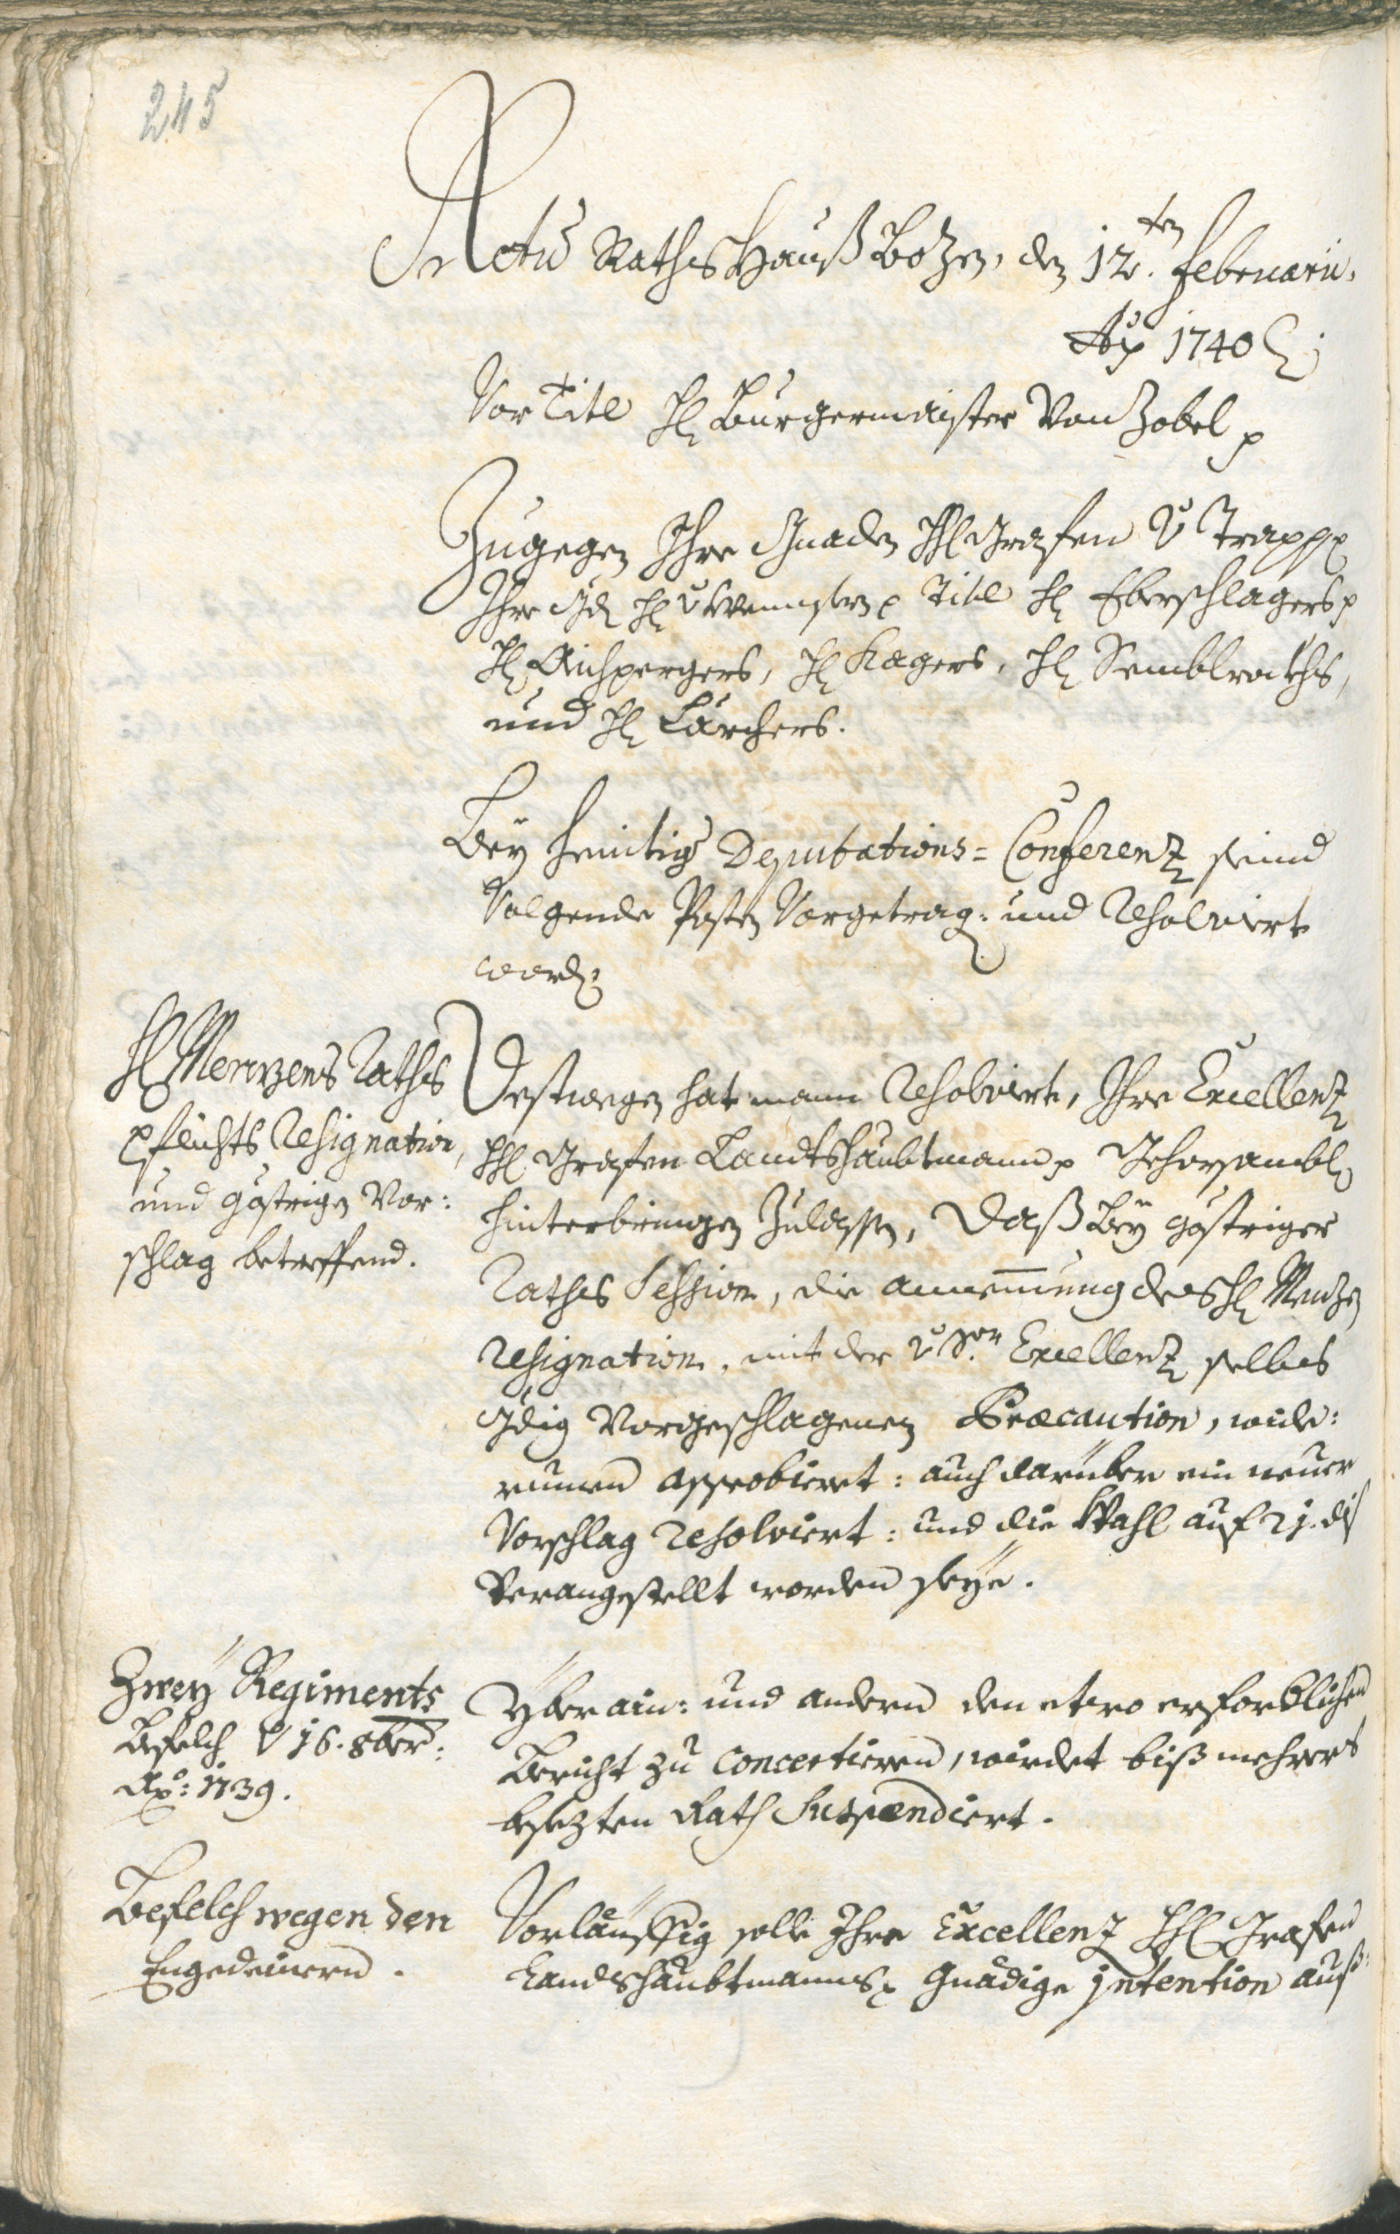 245
Actũ Raths Hauß Bozen, den 12.ten Februarii.
Aõ 1740
Vor Titl H: Burgermaister Von Zobel p
Zugegen Ihre Gnaden HH: Grafen v Trapp p
Ihro Gd H: v Titl H: Eberschlagers p
H: Aichpergers, H: Kagers, H: Semblraths,
und H: Lärchers.
Bey heintig Deputations=Conferenz seind
Volgende Posten Vorgetrag: und Resolviert
word:
H: Menzens Raths
pflichts Resignation,
und gestrigen Vor:
schlag betreffend.
Destwegen hat mann Resolvirt, Ihro Excellenz
HH: Grafen Landtshaubtmann p Gehorsambl:
hinterbringen Zulassen, daß bey gestriger
Raths Session, die annemung des H: Menzen
resignation, mit der v Sr Excellenz selbes
Gdig Vorgeschlagenen Præcaution, wide:
rumen approbieret: auch darüber ein neuer
Vorschlag resolviert: und die Wahl auf 21. dis
Verangestellt worden seye.
Zwey Regiments
Befelch v 16. 8ber:
Aõ: 1739.
Yber ain: und andern den etwo erforblichen
Bericht zu concertieren, wirdet biß mehrers
besezten Rath Suspendiert.
Befelch wegen den
Engedeinern.
Vorläuffig solle Ihro Excellenz HH: Grafen
Landshaubtmanns p Gnädige jntention auß=